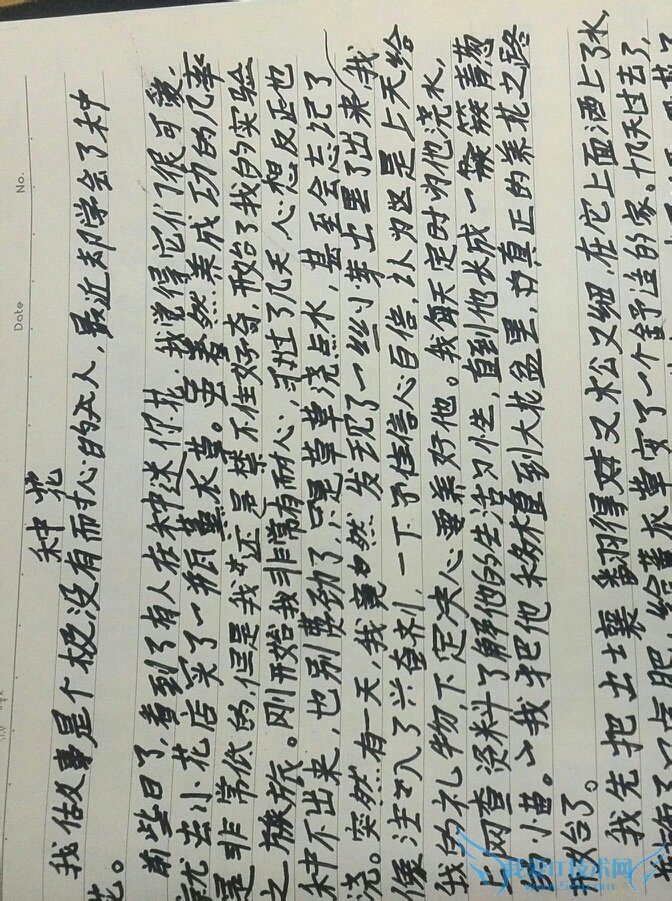 No.
Date
种花
我做事是个极没有耐心的人,最近却学会了种
花。
前些日子,看到了有人在种迷你花,我觉得它们很可爱,
就去小花店买了一瓶薰衣草。虽然养成功的几率
是非常低的,但是我还是禁不住好奇,开始了我的实验
之旅。刚开始我非常有耐心,可过了几天,心想反正也
种不出来,也别费劲了,只是草草浇点水,甚至会忘记了
浇。突然有一天,我竟然发现了一丝小芽土里了出来,我
像注入了兴奋剂,一下子信心百倍,认为这是上天给
我的礼物,下定决心要养好他。我每天定时为他浇水,
上网查资料了解他的生活习性,直到他长成一簇簇青葱
的小苗。我把他移植到大花盆里,真正的养花之路
开始了。
我先把土壤翻得又松又细,在它上面洒上了水,
给薰衣草安了一个舒适的家。几天过去了,